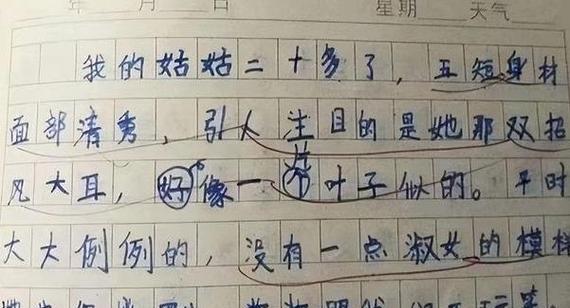 年 月 日 星期 天气
我的姑姑二十多了，五短身材
面部清秀，引人注目的是她那双招
片
风大耳，好像一个叶子似的。平时
大大例例的，没有一点淑女的模样